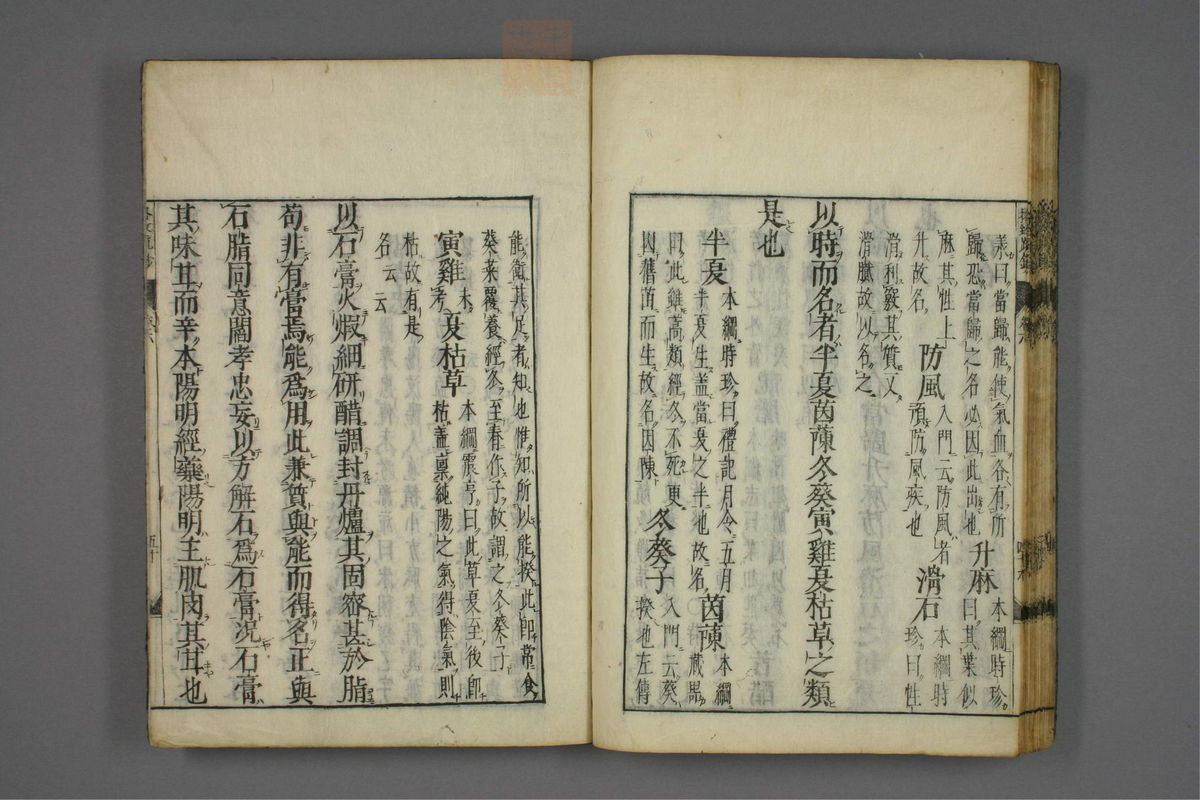 美曰當歸能使氣血各有所
歸恐當歸之名必因此出也
升麻
本綱時珍
曰其葉似
麻其性上
升故名
防風
入門云防風者
預防風疾也
滑石
本綱時
珍曰性
滑利竅其質又
滑膩故以名之
以時而名者半夏茵蔯冬葵寅雞夏枯草之類
是也
半夏
本綱時珍曰禮記月令五月
半夏生蓋當夏之半也故名
茵蔯
本綱
藏噐
曰此雖蒿類經冬不死更
因舊苗而生故名因陳
冬葵子
入門云葵
揆也左傳
能衛其足者知也惟知所以能揆此即常食
葵菜覆養經冬至春作子故謂之冬葵子
寅雞
未
考
夏枯草
本綱震亨曰此草夏至後即
枯蓋稟純陽之氣得陰氣則
枯故有是
名云云
以石膏火煆細研醋調封丹爐其固密甚於脂
苟非有膏焉能爲用此兼質與能而得名正與
石脂同意閻孝忠妄以方解石爲石膏況石膏
其味甘而辛本陽明經藥陽明主肌肉其甘也
五十